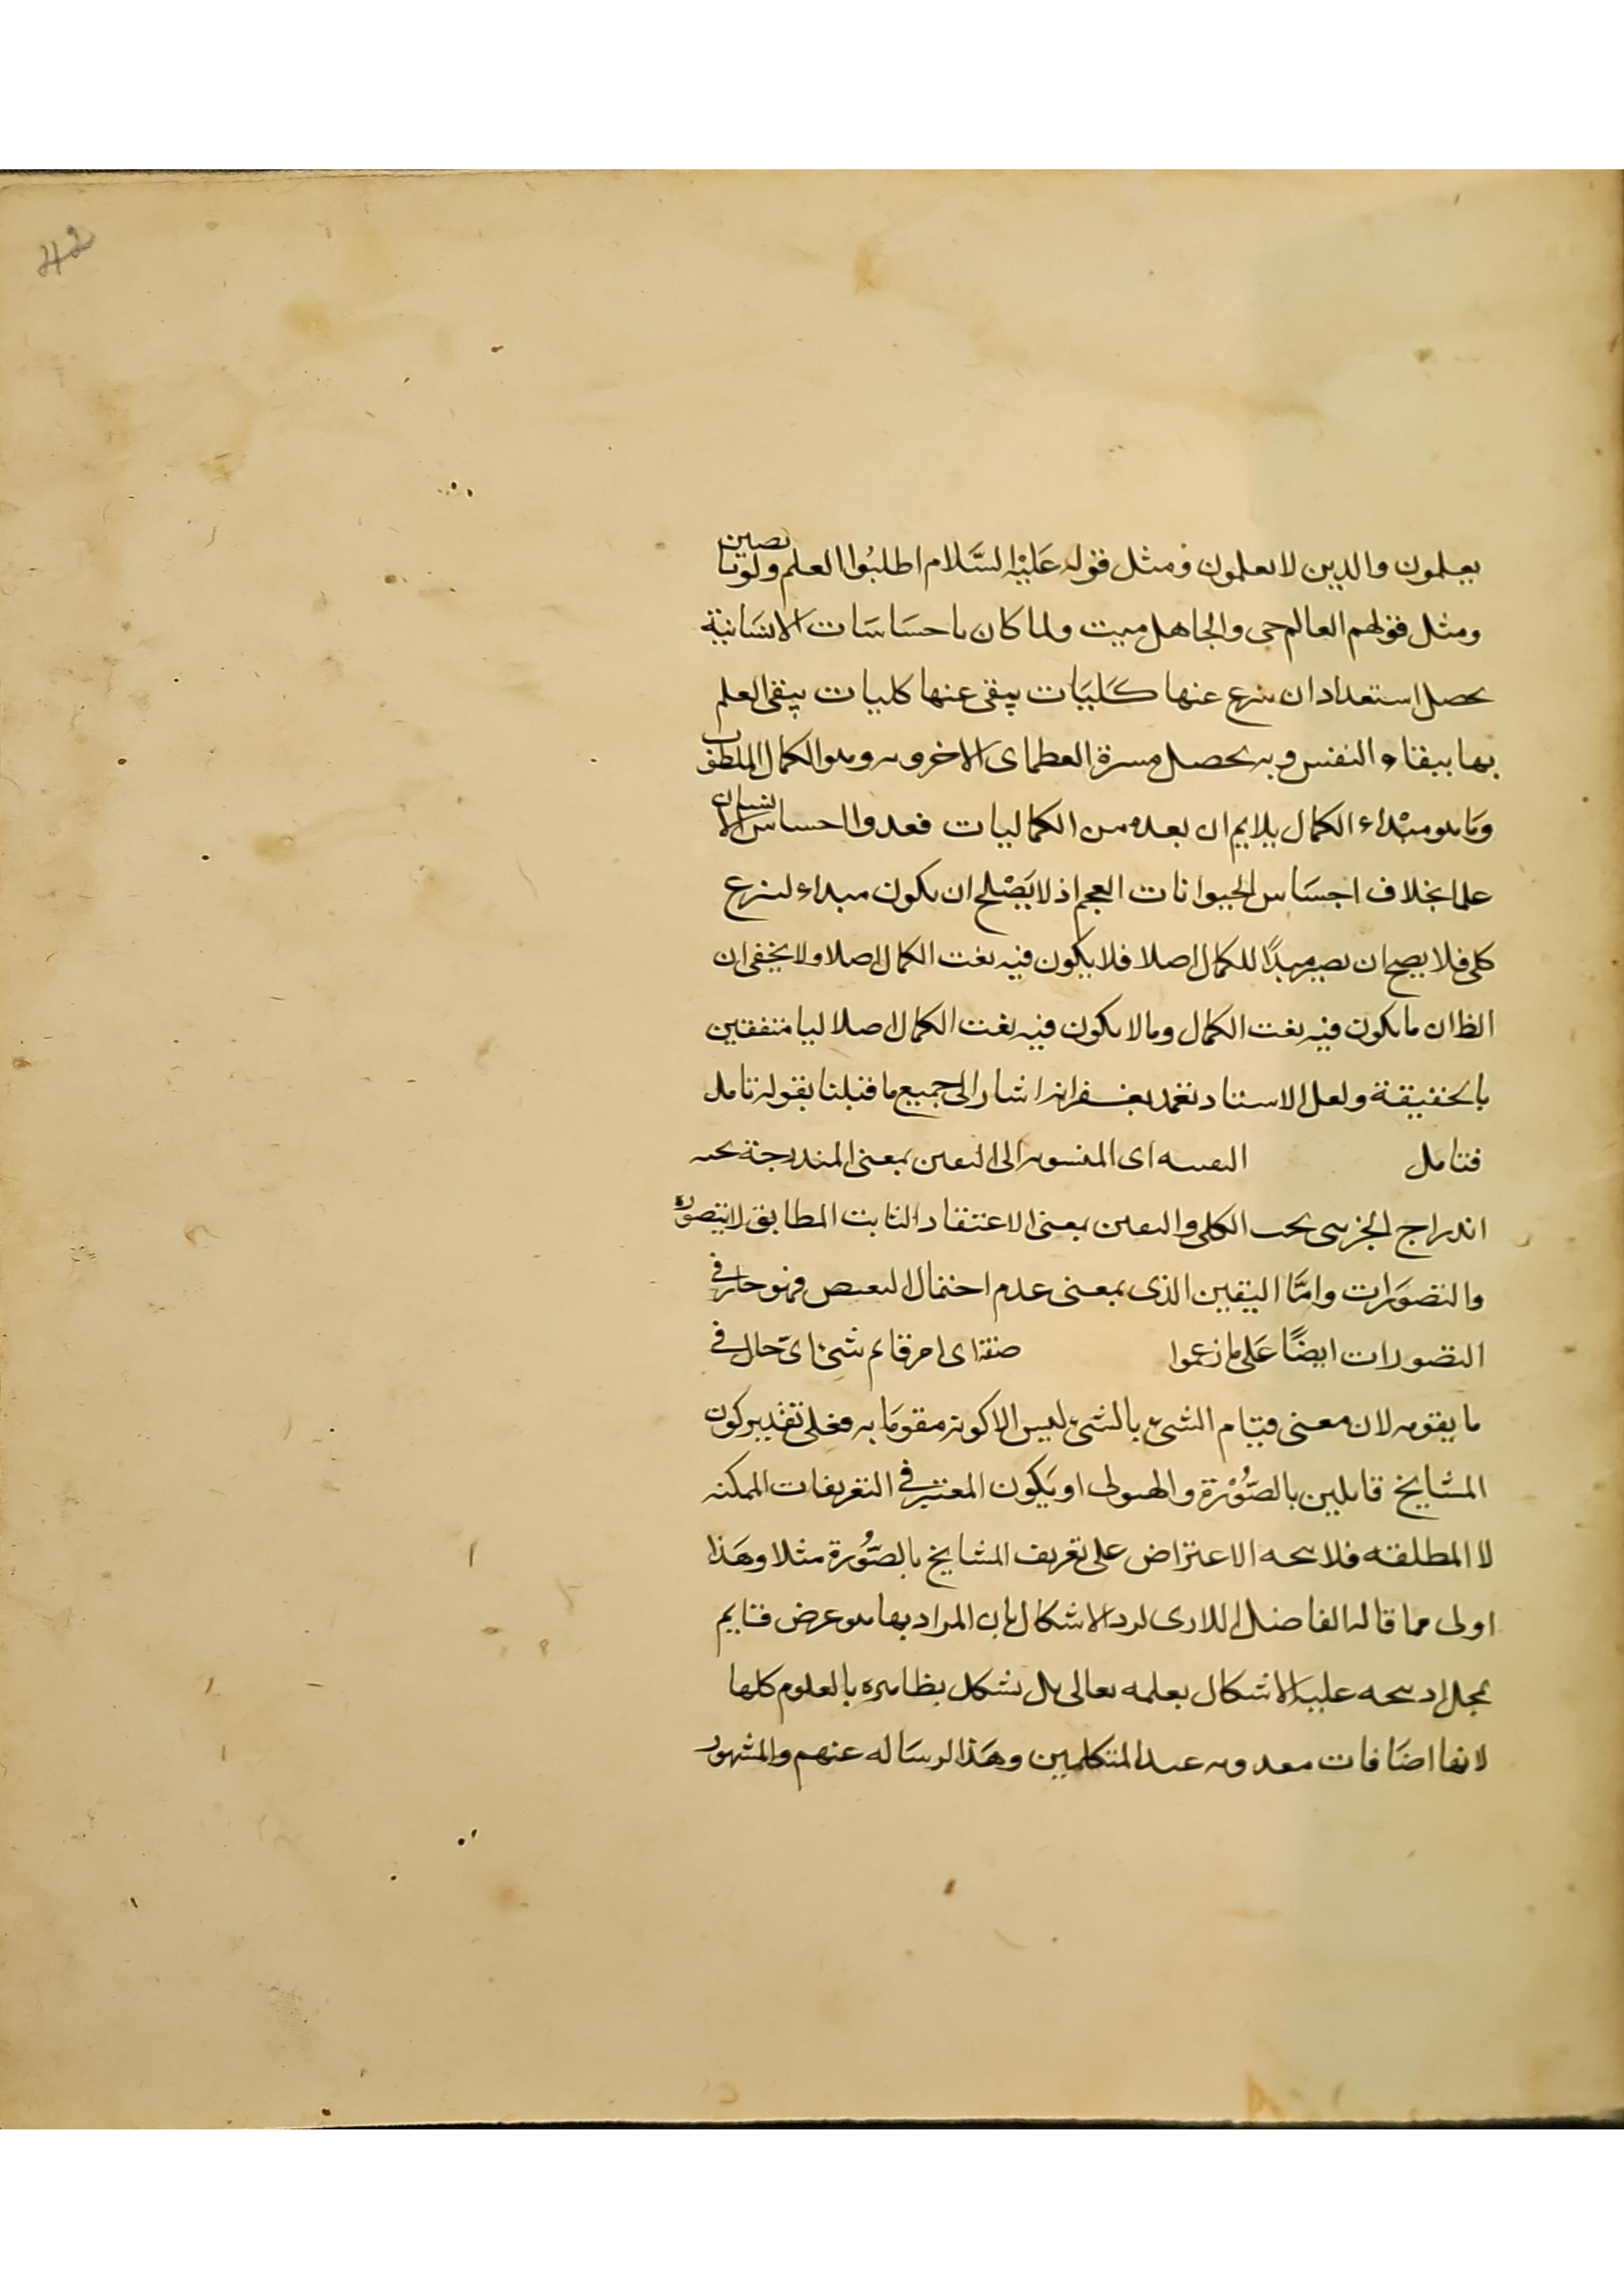 42
يعلمون والذين لا يعلمون ومثل قوله عَلَيْه السَّلام اطلبُوا العلم ولو بالصين
ومثل قولهم العالم حى والجاهل ميت ولما كان باحسَاسَات الانسَانية
يحصل استعداد ان ينزع عنها كليَات يبقى عنها كليات يبقى العلم
بها ببقاء النفس وبه يحصل مسرة العظماى الاخرويه وهو الكمال المطلوب
وَما هو مبْداء الكمال يلايم ان يعد من الكماليات فعدوا احساس الانسان
علما بخلاف احسَاس الحيوانات العجم اذ لا يَصْلح ان يكون مبداء لنزع
كلى فلا يصح ان يصير مبدًا للكمال اصلا فلا يكون فيه نعت الكمال اصلا ولا يخفى ان
الظ ان ما يكون فيه نعت الكمال وما لا يكون فيه نعت الكمال اصلا ليا متفقين
بالحقيقة ولعل الاستاد تغمد بغفرانه اشار الى جميع ما قبلنا بقوله تامل
فتامل اليقينيه اى المنسوبه الى اليقين بمعنى المندرجة تحته
اندراج الجزيى تحت الكلى واليقين بمعنى الاعتقاد الثابت المطابق لا يتصور
والتصوَرات وامَّا اليقين الذى بمعنى عدم احتمال النقيض فهو جار فى
التصورات ايضًا عَلى ما زعموا صفة اى امر قايم بشئ اى حال فى
ما يقومه لان معنى قيَام الشئ بالشئ ليس الا كونه مقومَا به فعلى تقدير كون
المشايخ قايلين بالصُّوْرة والهيولى او يَكون المعتبر فى التعريفات الممكنه
لا المطلقه فلا يتجه الاعتراض على تعريف المشايخ بالصُّورة مثلا وهَذا
اولى مما قاله الفاضل اللارى لرد الاشكال بان المراد بها هو عرض قايم
بمحل اذ يتجه عليه الاشكال بعلمه تعالى بل يشكل بظاهره بالعلوم كلها
لانها اضَافات معدومه عند المتكلمين وهَذا الرسَاله عنهم والمشهور